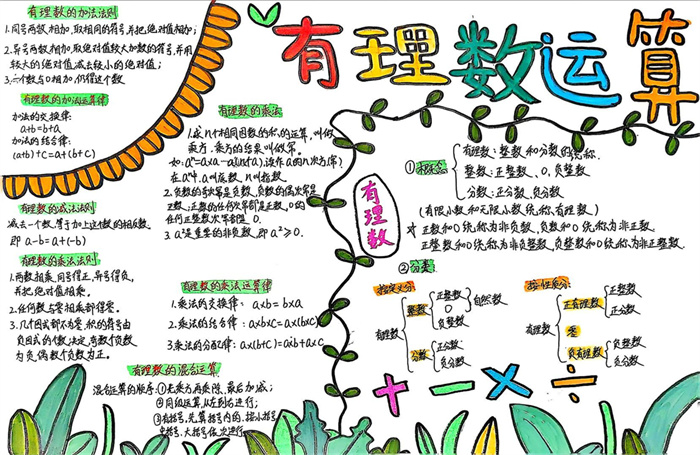 有理数运算
有理数的加法法则
1.同号两数相加,取相同的符号,并把绝对值相加;
2.异号两数相加,取绝对值较大加数的符号,并用
较大的绝对值减去较小的绝对值;
3.一个数与0相加,仍得这个数
有理数的加法运算律
加法的交换律:
a+b=b+a
加法的结合律:
(a+b)+c=a+(b+c)
有理数的减法法则
减去一个数,等于加上这个数的相反数,
即 a-b=a+(-b)
有理数的乘法法则:
1.两数相乘,同号得正,异号得负,
并把绝对值相乘。
2.任何数与零相乘都得零。
3.几个因式都不为零,积的符号由
负因式的个数决定,奇数个负数
为负,偶数个数为正。
有理数的乘法
1.求n个相同因数的积的运算,叫做
乘方,乘方的结果叫做幂。
在aⁿ中,a叫底数,n叫指数
2.负数的奇次幂是负数,负数的偶次幂是
正数;正数的任何次幂都是正数,0的
任何正整数次幂都是0.
3.a²是重要的非负数,即a²≥0.
有理数的乘法运算律
1.乘法的交换律: a×b=b×a
2.乘法的结合律: a×b×c=a×(b×c)
3.乘法的分配律: a×(b+c)=a×b+a×c
有理数的混合运算
混合运算的顺序:①先乘方,再乘除,最后加减;
②同级运算,从左到右进行;
③有括号,先算括号内的,按小括号
中括号、大括号依次进行
有理数
①概念
有理数:整数和分数的统称.
整数:正整数、0、负整数
分数:正分数、负分数
(有限小数和无限小数统称有理数)
正数和0统称为非负数,负数和0统称为非正数.
正整数和0统称为非负整数,负整数和0统称为非正整数.
②分类
按定义分:
有理数
整数
正整数
0
负整数
自然数
分数
正分数
负分数
按性质分:
有理数
正有理数
正整数
正分数
零
负有理数
负整数
负分数
+ - × ÷